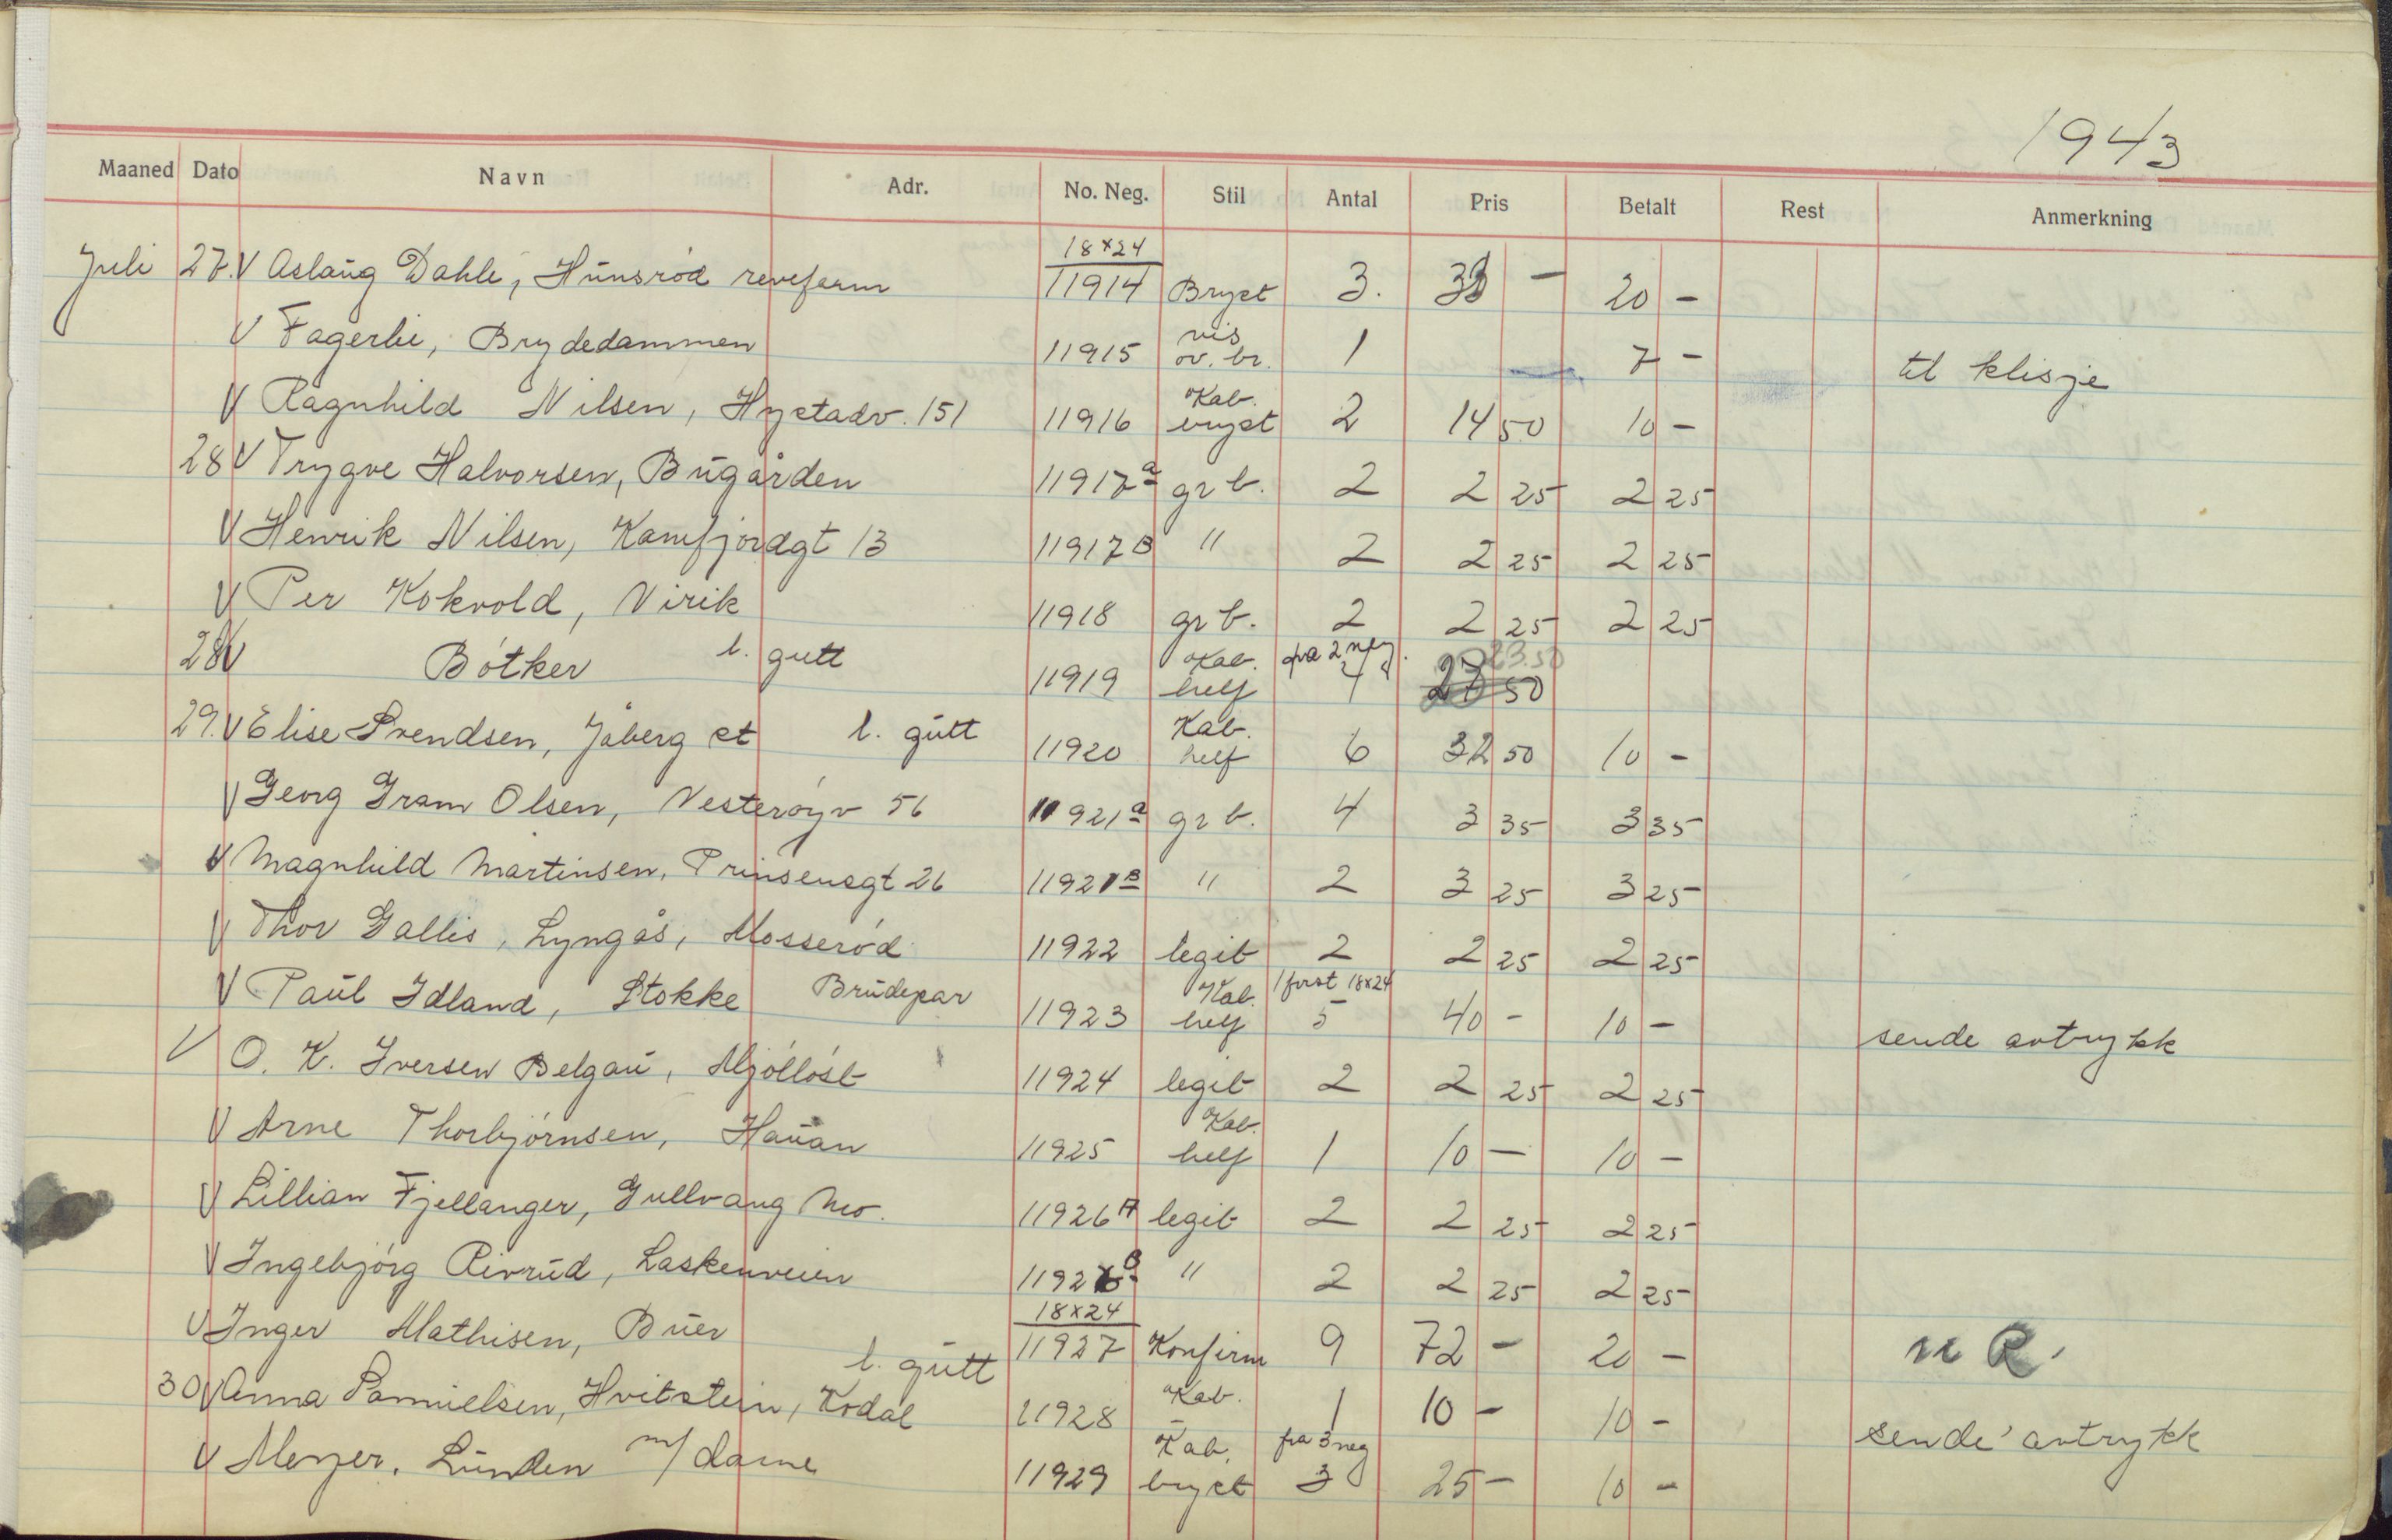 1943
Maaned Dato Navn Adr. No. Neg. Stil Antal Pris Betalt Rest Anmerkning
18x24
Juli 27. V Aslaug Dahle, Hunsrød revefarm 11914 Bryst 3. 33 - 20 -
vis
V Fagerli, Brydedammen 11915 ov. br. 1 7 - til klisje
Kab.
V Ragnhild Nilsen, Hystadv. 151 11916 bryst 2 14 50 10 -
28 V Trygve Halvorsen, Bugården 11917a gr b. 2 2 25 2 25
V Henrik Nilsen, Kamfjordgt 13 11917B " 2 2 25 2 25
V Per Kokvold, Virik 11918 gr b. 2 2 25 2 25
Kab. fra 2 neg. 23.50
28 V Bøtker l. gutt 11919 helf 4 50
Kab.
29. V Elise Svendsen, Jåberg st l. gutt 11920 helf 6 32 50 10 -
V Georg Gram Olsen, Vesterøyv 56 11921a gr b. 4 3 35 3 35
V Magnhild Martinsen, Prinsensgt 26 11921B " 2 3 25 3 25
V Thor Gallis, Lyngås, Mosserød 11922 legit 2 2 25 2 25
Kab. 1 forst 18x24
V Paul Idland, Stokke Brudepar 11923 helf 5 40 - 10 - sende avtrykk
V O. K. Iversen Belgau, Mjølløst 11924 legit 2 2 25 2 25
Kab.
V Arne Thorbjørnsen, Hauan 11925 helf 1 10 - 10 -
V Lillian Fjellanger, Gullvang Mo. 11926A legit 2 2 25 2 25
V Ingebjørg Rivrud, Laskenveien 11926B " 2 2 25 2 25
18x24
V Inger Mathisen, Buer 11927 Konfirm 9 72 - 20 - R.
l. gutt Kab.
30 V Anna Samuelsen, Hvitstein, Kodal 11928 1 10 - 10 - sende avtrykk
Kab. fra 3 neg
V Meyer, Lunden m/ dame 11929 bryst 3 25 - 10 -